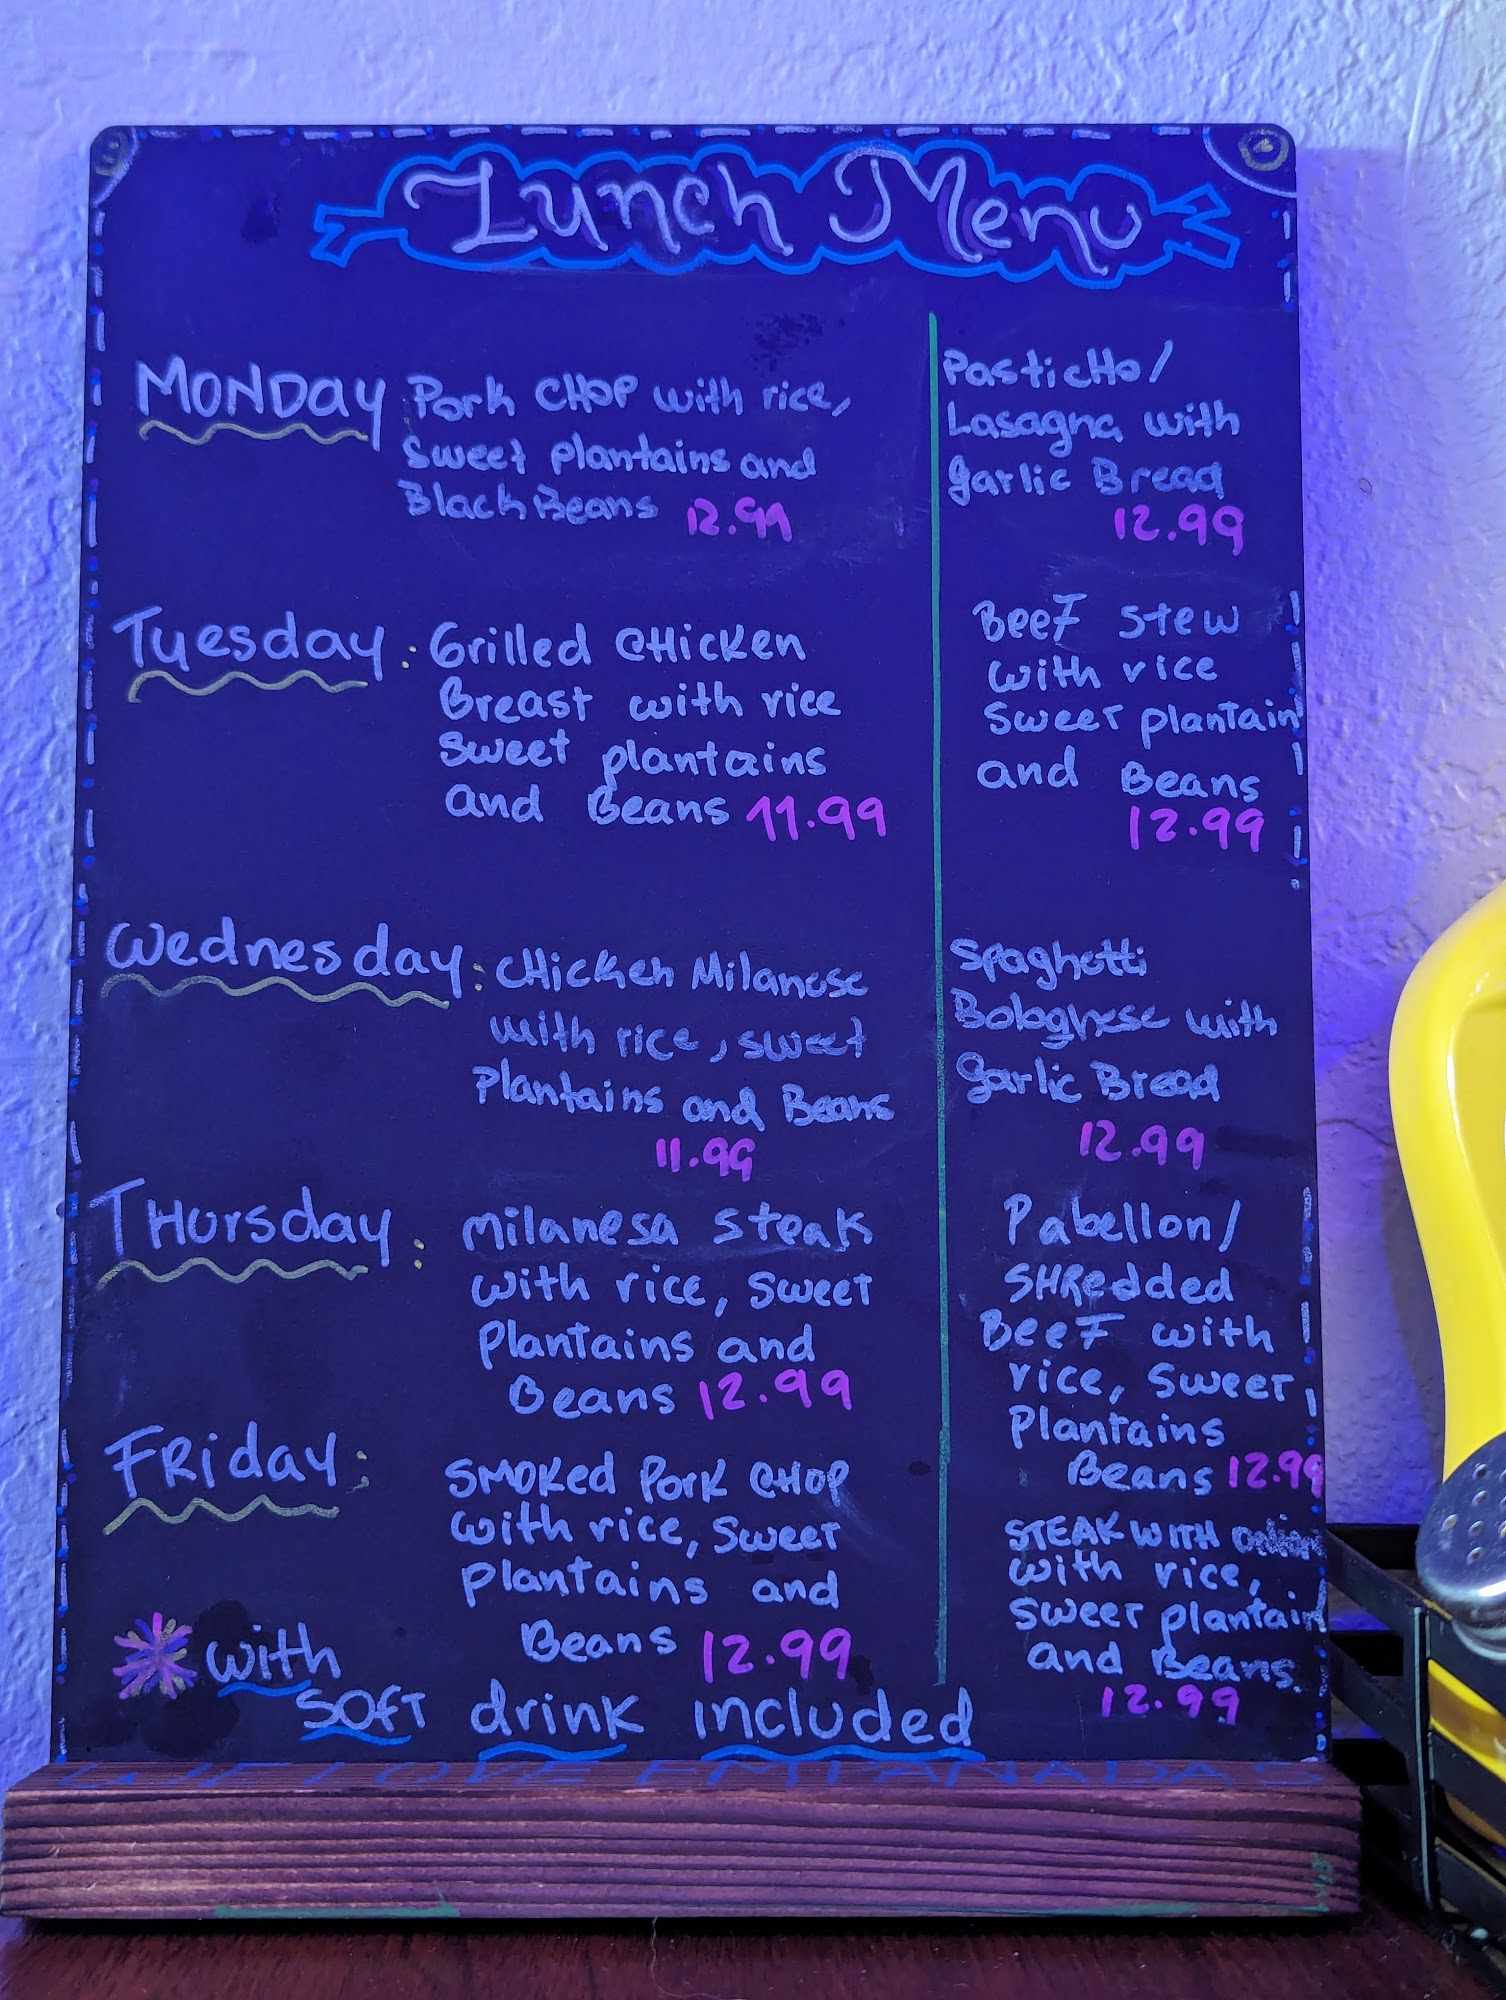 Lunch Menu
MONDAY Pork CHOP with rice,
Sweet plantains and
Black Beans 12.99
PasticHo/
Lasagna with
garlic Bread
12.99
Tuesday: Grilled CHicken
Breast with rice
sweet plantains
and Beans 11.99
BeeF stew
with rice
sweet plantain
and Beans
12.99
Wednesday: CHicken Milanese
with rice, sweet
Plantains and Beans
11.99
Spaghetti
Bologhese with
garlic Bread
12.99
THursday: Milanesa steak
with rice, sweet
Plantains and
Beans 12.99
Pabellon/
SHRedded
BeeF with
rice, sweet
Plantains
Beans 12.99
FRiday: SMOKed PorK CHOP
with rice, sweet
plantains and
Beans 12.99
STEAK WITH
with rice,
sweet plantain
and Beans.
12.99
with
SOFT drink included
WE LOVE EMPANADAS